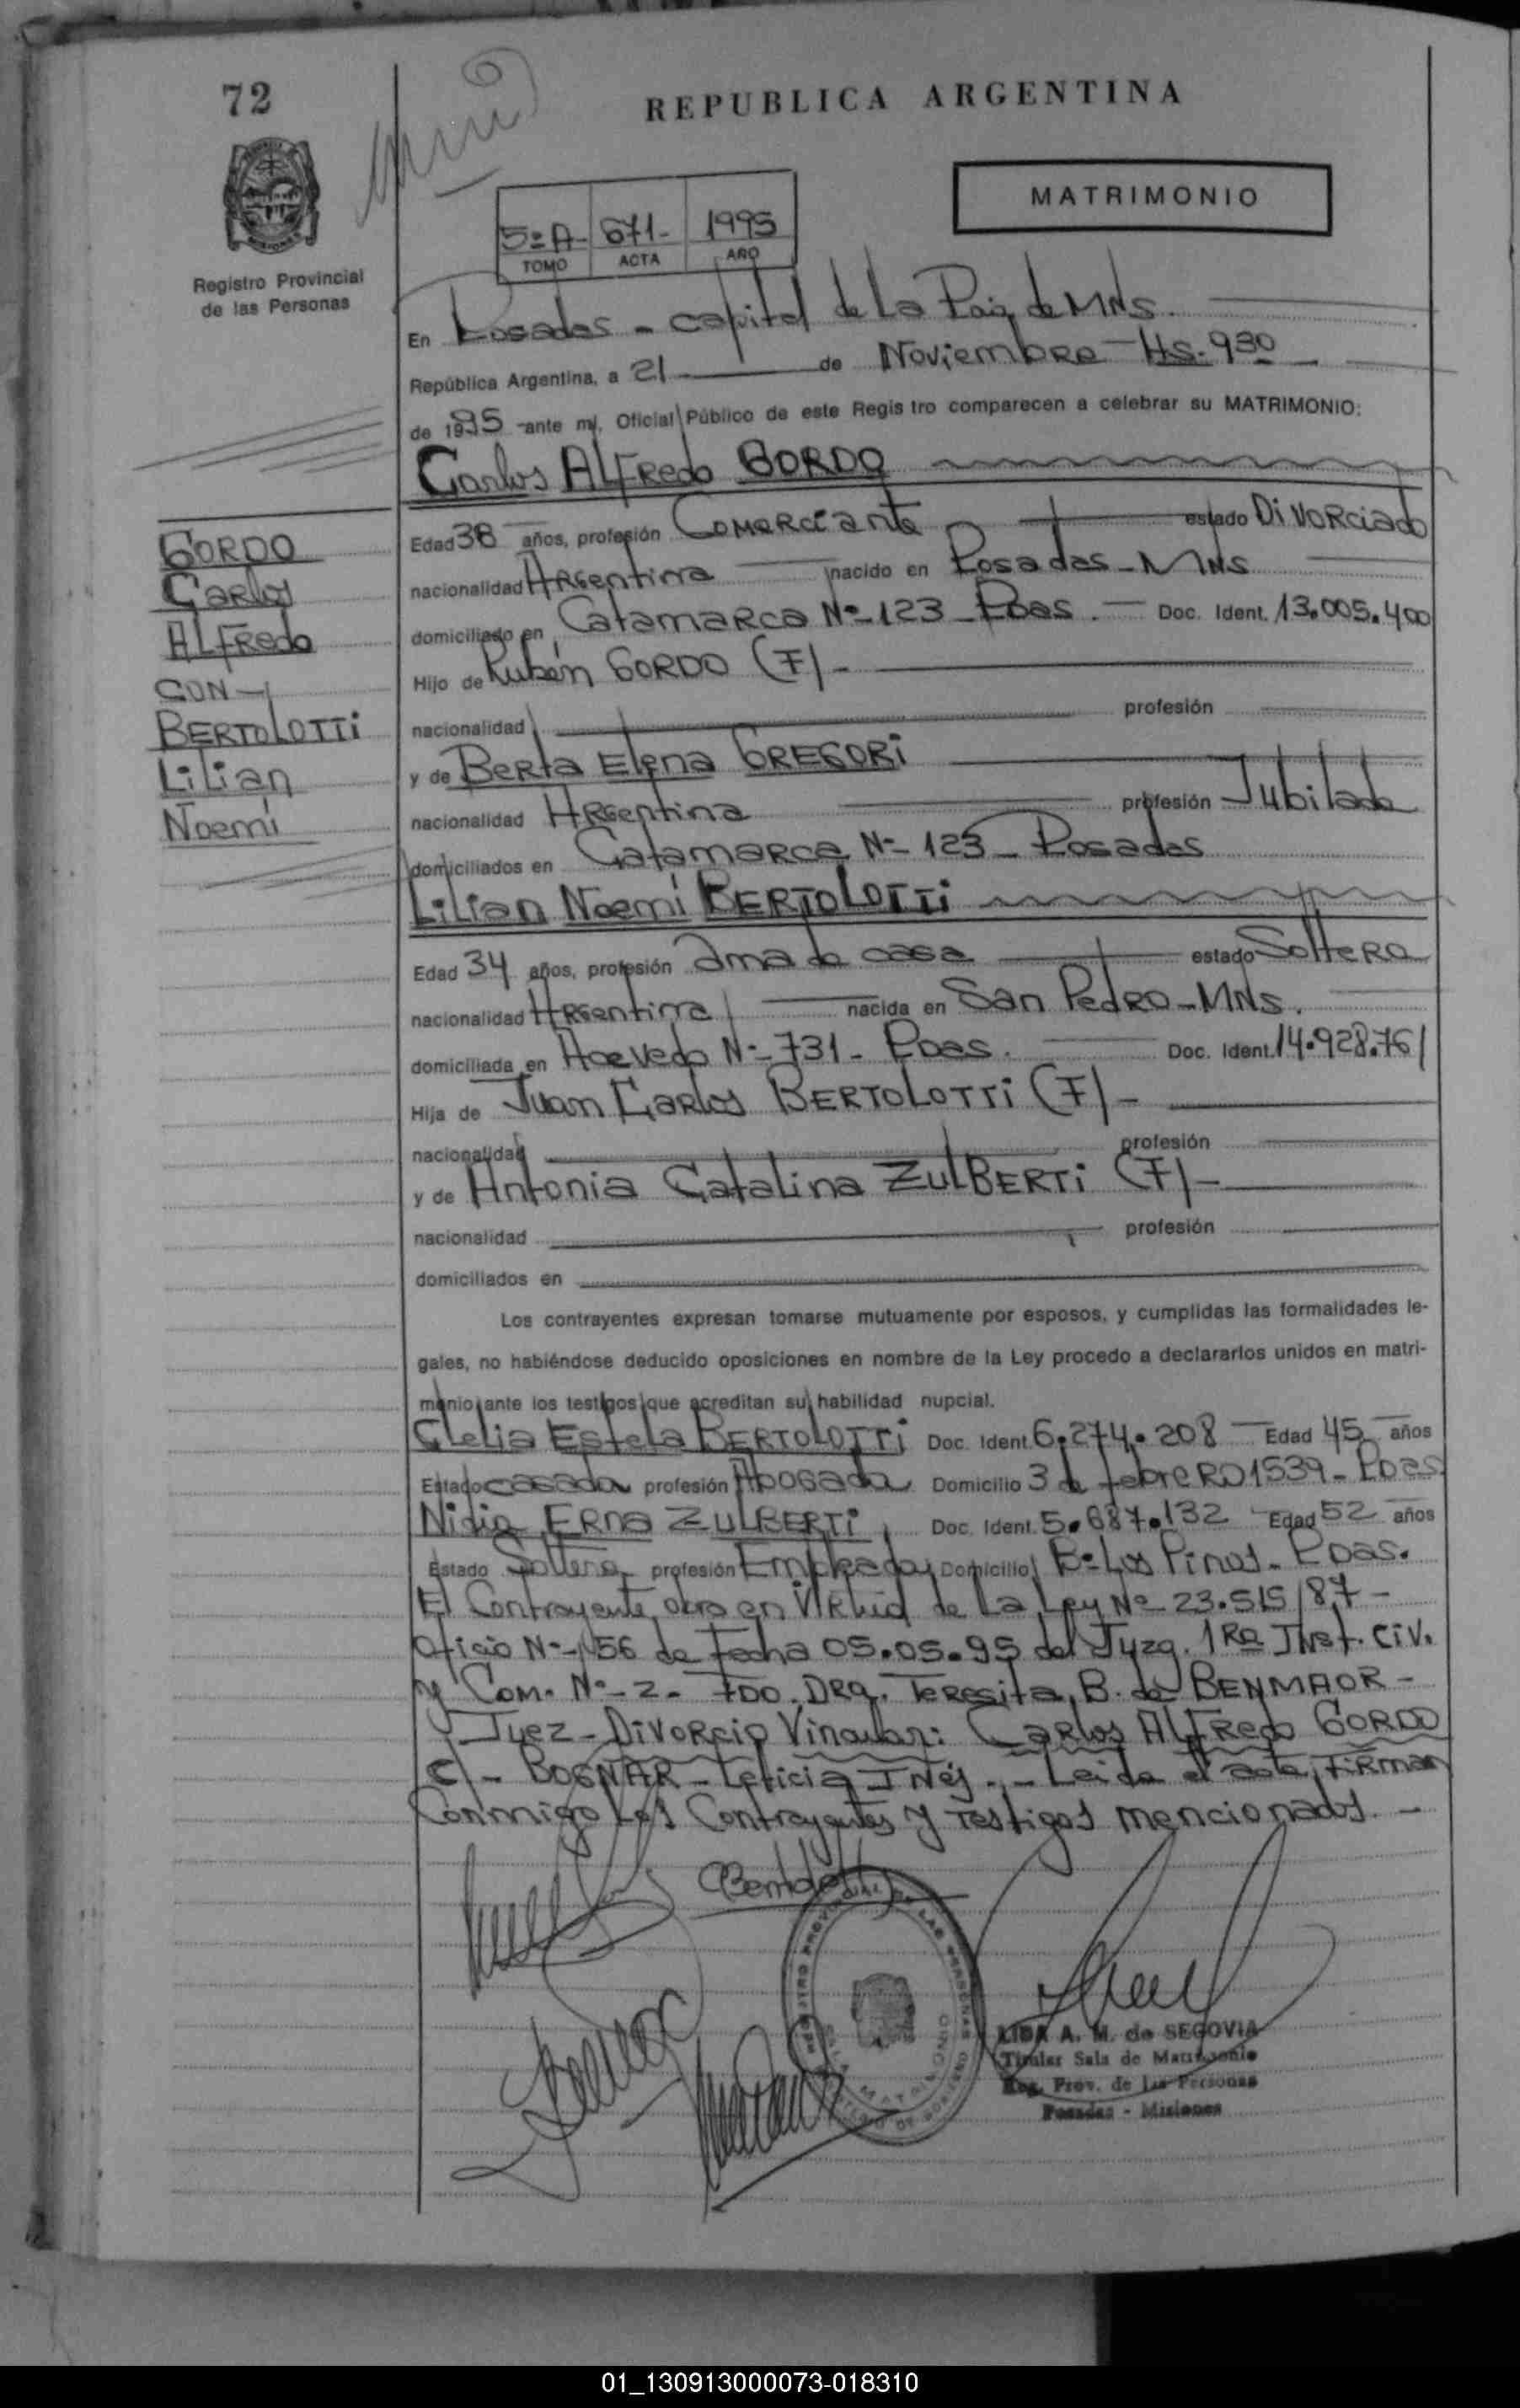 72
REPUBLICA ARGENTINA
MATRIMONIO
Registro Provincial
de las Personas
5º A- 671- 1995
TOMO ACTA AÑO
En Posadas - capital de La de MNS.
República Argentina, a 21 de Noviembre Hs. 930
de 1995 ante mí, Oficial Público de este Regis tro comparecen a celebrar su MATRIMONIO:
Carlos ALFRedo GORDO
Edad 38 años, profesión Comerciante estado DiVORciado
nacionalidad ARGentina nacido en Posadas - MNS
domiciliado en Catamarca Nº 123 - Pdas. Doc. Ident. 13.005.400
Hijo de Rubén GORDO (F) -
nacionalidad profesión
y de Berta Elena GREGORi
nacionalidad ARGentina profesión Jubilada
domiciliados en Catamarca Nº 123 - Posadas
GORDO
Carlos
ALFRedo
CON -
BERTOLOTTi
Lilian
Noemí
Lilian Noemí BERTOLOTTi
Edad 34 años, profesión Ama de casa estado SolteRa
nacionalidad ARGentina nacida en San PedRo - MNS.
domiciliada en Acevedo Nº 731 - Pdas. Doc. Ident. 14.928.761
Hija de Juan Carlos BERTOLOTTi (F) -
nacionalidad profesión
y de Antonia Catalina ZULBERTi (F) -
nacionalidad profesión
domiciliados en
Los contrayentes expresan tomarse mutuamente por esposos, y cumplidas las formalidades le-
gales, no habiéndose deducido oposiciones en nombre de la Ley procedo a declararlos unidos en matri-
monio ante los testigos que acreditan su habilidad nupcial.
Clelia Estela BERTOLOTTi Doc. Ident. 6.274.208 Edad 45 años
Estado casada profesión Abogada Domicilio 3 de febreRo 1539 - Pdas.
Nidia ERna ZULBERTi Doc. Ident. 5.687.132 Edad 52 años
Estado Soltera profesión Empleada Domicilio Bº Los Pinos - Pdas.
El Contrayente obra en ViRtud de La Ley Nº 23.515/87 -
Oficio Nº 156 de Fecha 05.05.95 del Juzg. 1Ra Inst. Civ.
y Com. Nº 2 - FDO. DRa. Teresita B. de BENMAOR -
Juez - DiVoRcio Vincular: Carlos ALFRedo GORDO
c/ - BOGNAR - Leticia INés. - Leida el acta, FiRman
Conmigo Los Contrayentes y Testigos mencionados. -
LIDA A. M. de SEGOVIA
Titular Sala de Matrimonio
Reg. Prov. de las Personas
Posadas - Misiones
01_130913000073-018310